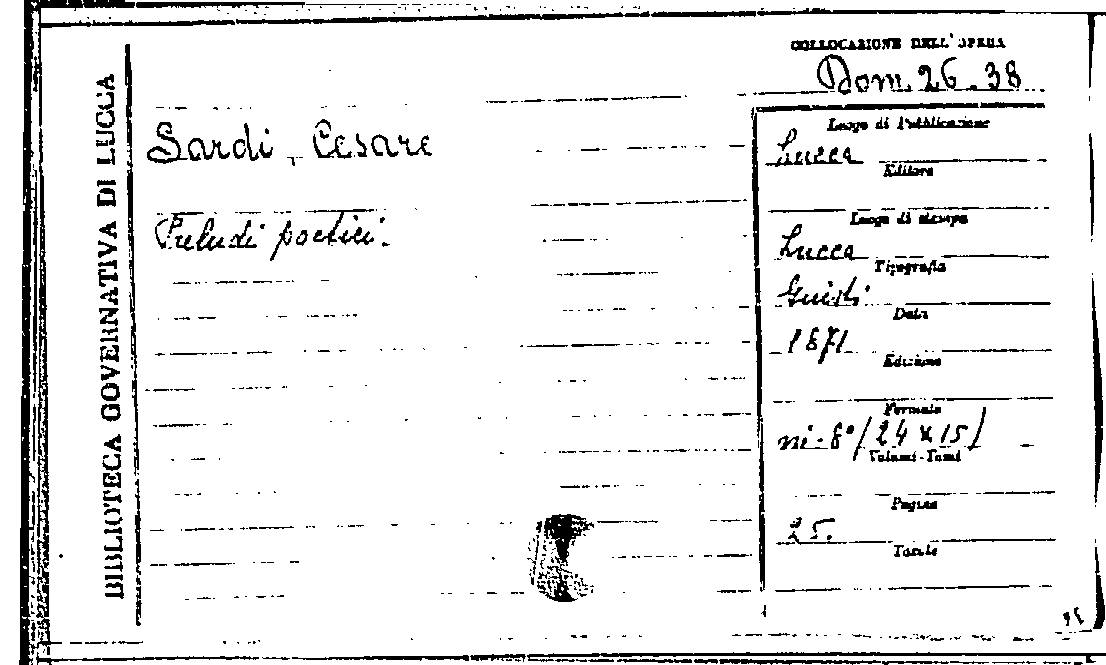 BIBLIOTECA GOVERNATIVA DI LUCCA
COLLOCAZIONE DELL'OPERA
Dom. 26. 38
Sardi, Cesare
Preludi poetici.
Luogo di Pubblicazione
Lucca
Editore
Luogo di stampa
Lucca
Tipografia
Giusti
Data
1871
Edizione
Formato
in-8° (24 x 15)
Volumi-Tomi
Pagine
25.
Tavole